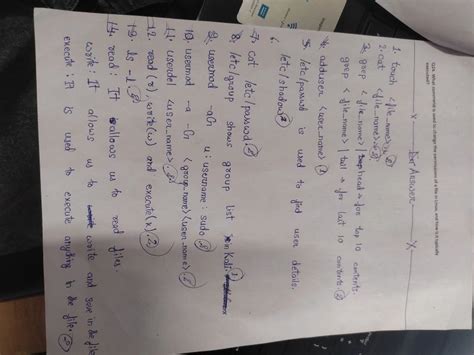 Q14. What command is used to change the permissions of a file in Linux, and how is it typically executed?
x — Answer — x
1. touch <file_name>
2. cat <file_name>
3. grep <file_name> | head for top 10 contents.
grep <file_name> | tail for last 10 contents
4. adduser <user_name>
5. /etc/passwd is used to find user details.
6. /etc/shadow
7. cat /etc/passwd.
8. /etc/group shows group list in Kali
9. usermod -aG u:username:sudo
10. usermod -a -G <group_name> <user_name>
11. userdel <user_name>
12. read(r), write(w) and execute(x).
13. ls -l
14. read: It allows us to read files.
write: It allows us to write and save in the file
execute: It is used to execute anything in the file.